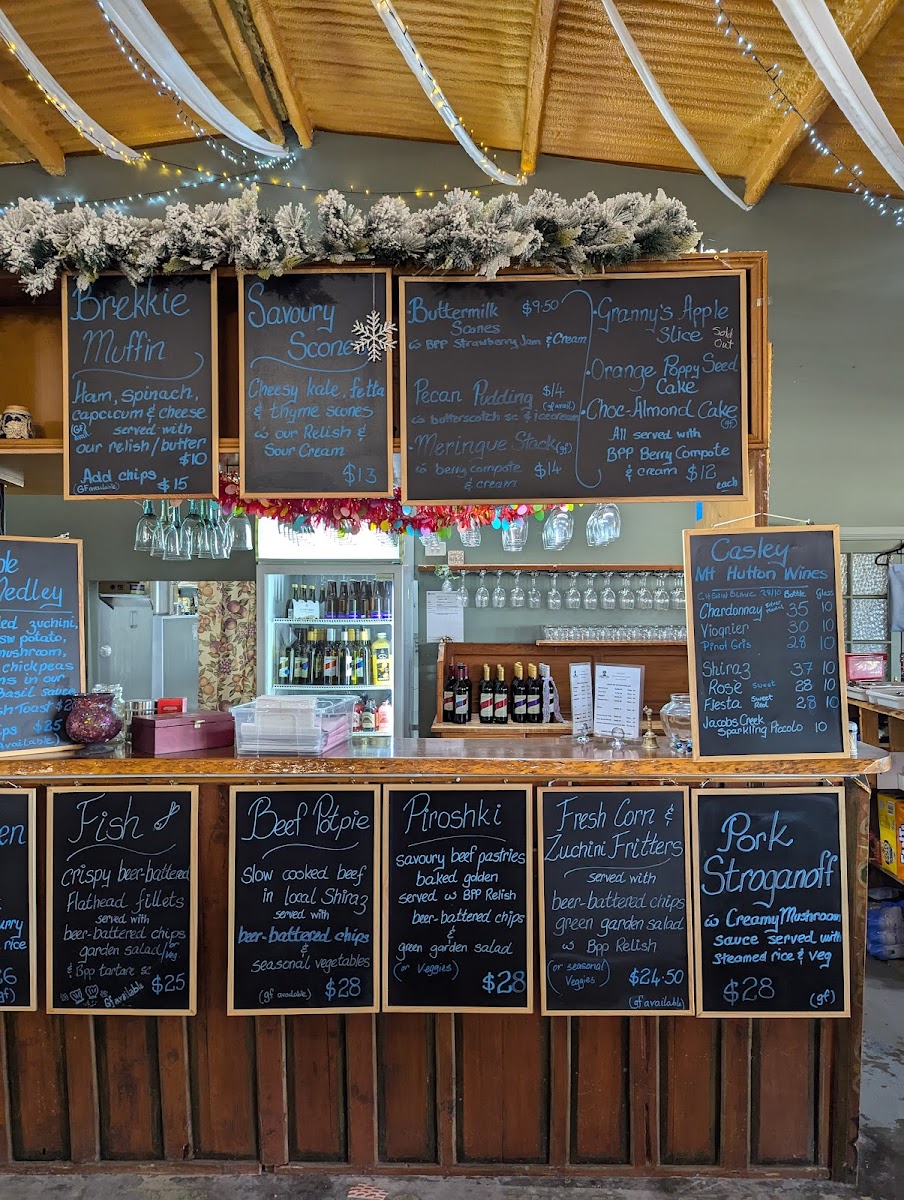 Brekkie
Muffin
Ham, spinach,
capcicum & cheese
served with
our relish/butter
(GF avail)
$10
Add chips $15
(GF available)
Savoury
Scones
Cheesy kale, fetta
& thyme scones
w our Relish &
Sour Cream
$13
•Buttermilk $9.50
Scones
w BPP Strawberry Jam & Cream
Pecan Pudding $14
(gf avail)
w butterscotch sc & icecream
•Meringue Stack (gf)
w berry compote $14
& cream
•Granny's Apple
Slice
Sold
Out
•Orange Poppy Seed
Cake
•Choc-Almond Cake
(gf)
All served with
BPP Berry Compote
& cream $12
each
Medley
zuchini,
potato,
mushroom,
chickpeas
in our
Basil sauce
Toast
$25
Casley
Mt Hutton Wines
Bottle Glass
Chardonnay 35 10
Viognier 30 10
Pinot Gris 28 10
Shiraz 37 10
Rosie Sweet 28 10
Fiesta Sweet Red 28 10
Jacobs Creek
Sparkling Piccolo 10
rice
(gf)
Fish
crispy beer-battered
Flathead fillets
served with
beer-battered chips
garden salad/or veg
& Bpp tartare sc
gf available
$25
Beef Potpie
slow cooked beef
in local Shiraz
served with
beer-battered chips
&
seasonal vegetables
(gf available) $28
Piroshki
savoury beef pastries
baked golden
served w BPP Relish
beer-battered chips
&
green garden salad
(or Veggies)
$28
Fresh Corn &
Zuchini Fritters
served with
beer-battered chips
green garden salad
w Bpp Relish
(or seasonal
Veggies) $24.50
(gf available)
Pork
Stroganoff
w Creamy Mushroom
sauce served with
steamed rice & veg
$28 (gf)